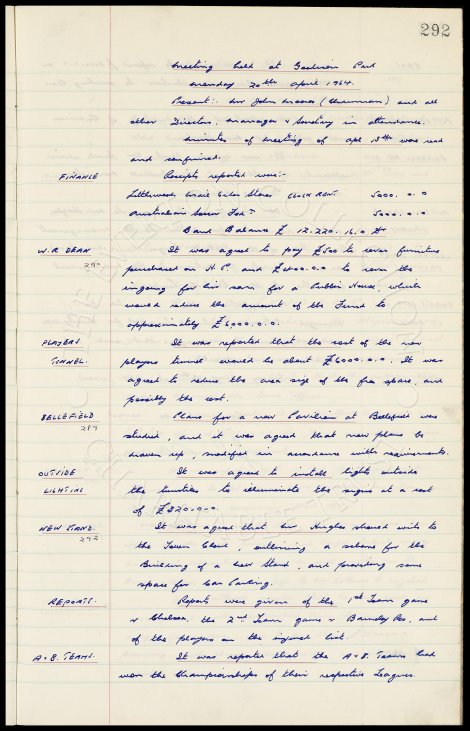 292
Meeting held at Goodison Park
Monday 20th April 1964.
Present:- Mr John Moores (Chairman) and all
other Directors. Manager & Secretary in attendance.
Minutes of meeting of Apl 13th were read
and confirmed.
FINANCE Receipts reported were:-
Littlewoods Mail Order Stores CLOCK RENT 5000. 0. 0
Australian Soccer Fedn 5000. 0. 0
Bank Balance £ 12.220. 16. 0 Dr
W. R. DEAN It was agreed to pay £500 to cover furniture
purchased on H.P. and £1000.0.0 to cover the
ingoing for his son for a Public House, which
would reduce the amount of the Fund to
approximately £6,000. 0. 0.
PLAYERS It was reported that the cost of the new
TUNNEL. players tunnel would be about £6000. 0. 0. It was
agreed to reduce the area size of the free space, and
possibly the cost.
BELLEFIELD Plans for a new Pavilion at Bellefield was
287 studied, and it was agreed that new plans be
drawn up, modified in accordance with requirements.
OUTSIDE It was agreed to install lights outside
LIGHTING the turnstiles to illuminate the signs at a cost
of £320-0-0.
NEW STAND. It was agreed that Mr. Hughes should write to
292 the Town Clerk, outlining a scheme for the
Building of a New Stand, and providing some
space for Car Parking.
REPORTS. Reports were given of the 1st Team game
v Chelsea, the 2nd Team game v Barnsley Res, and
of the players on the injured list.
A & B. TEAMS. It was reported that the A & B. Teams had
won the Championships of their respective Leagues.